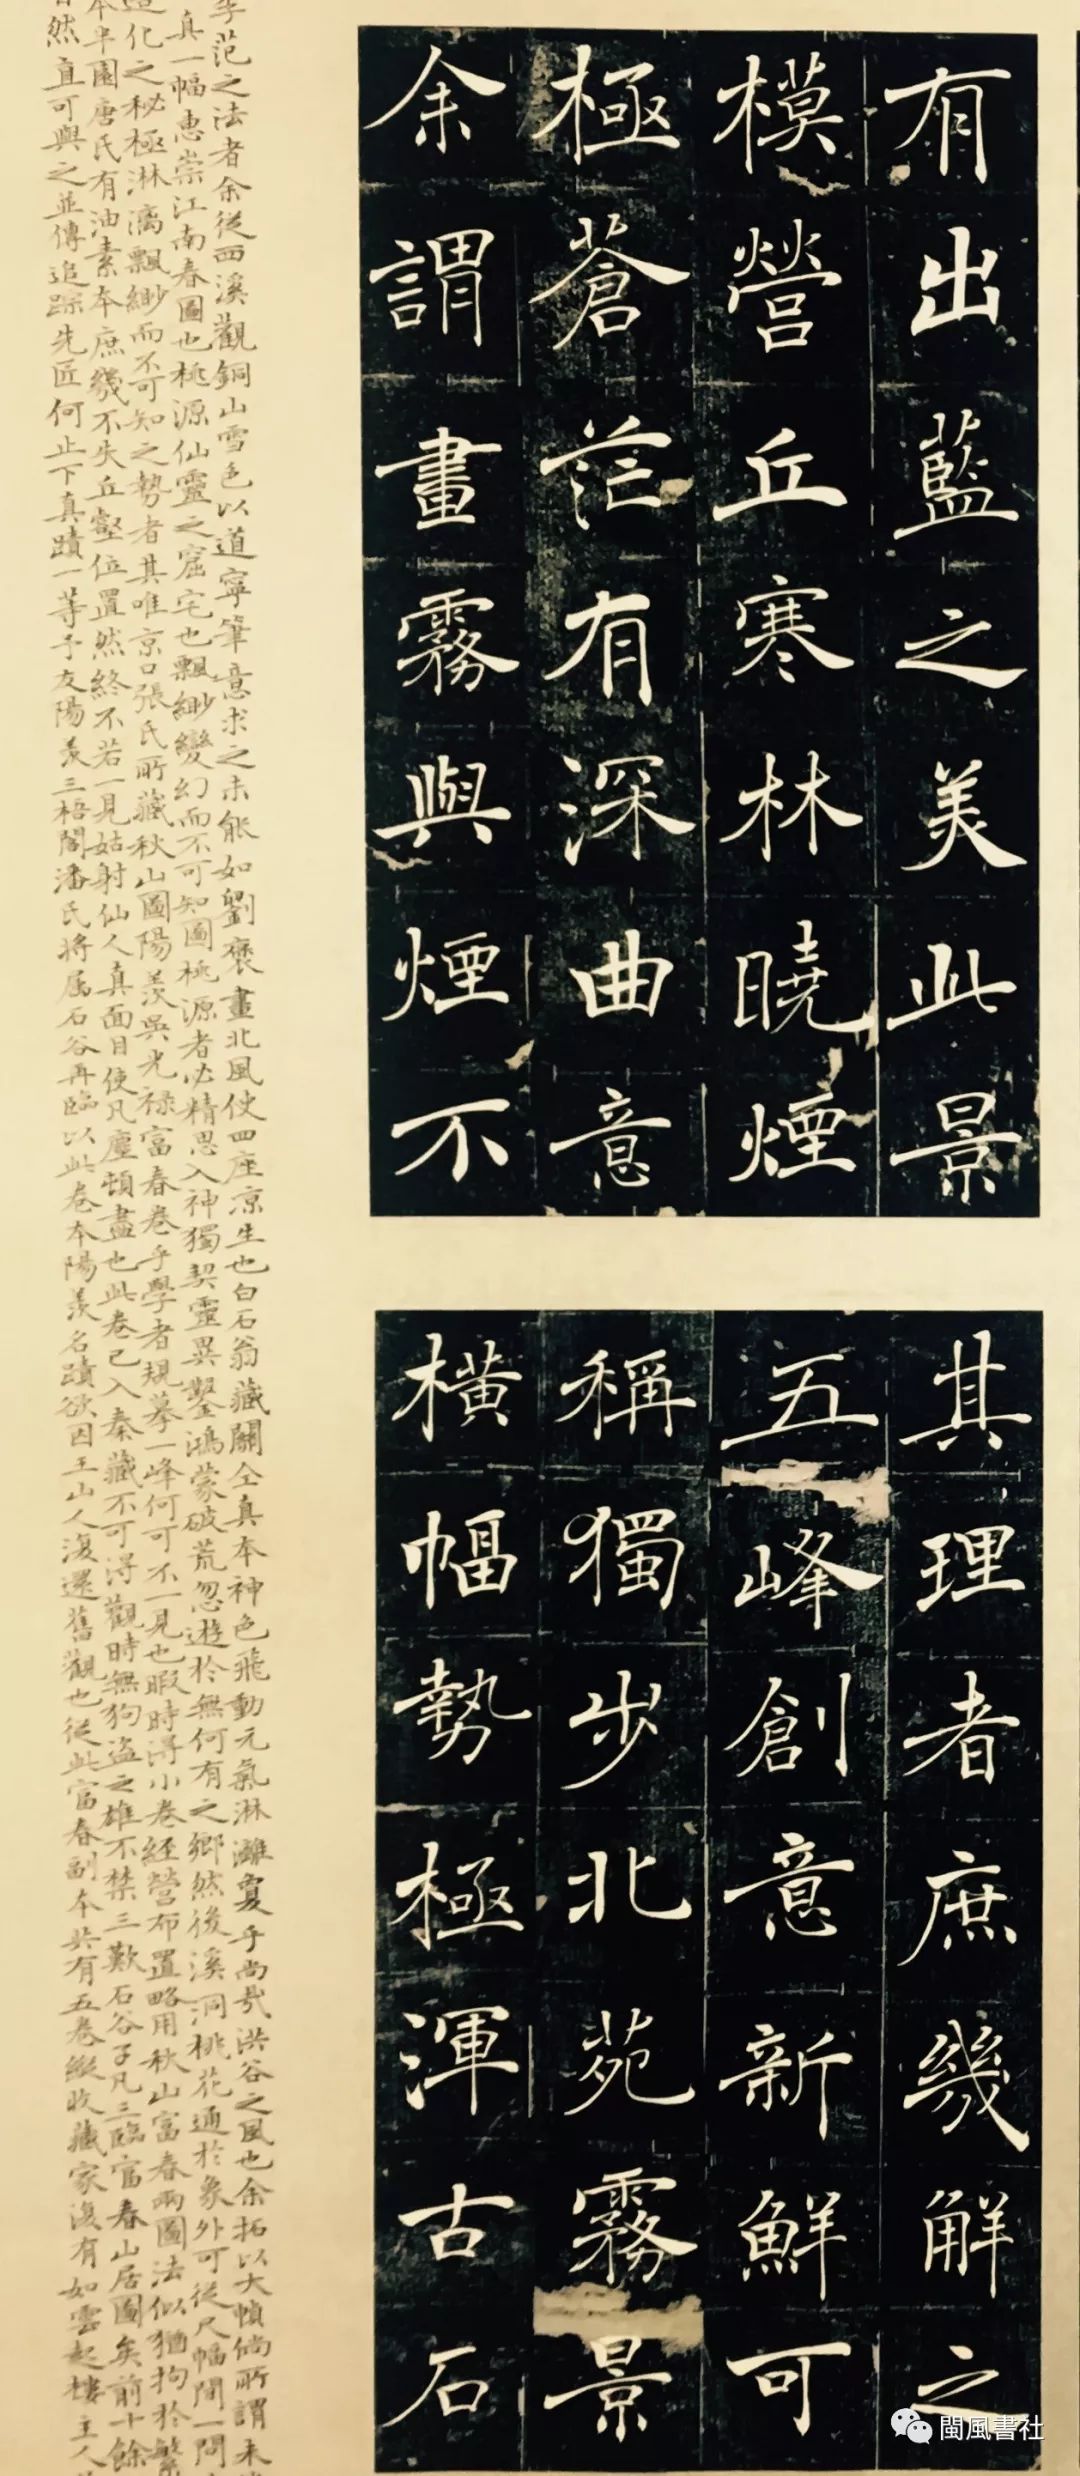 有出藍之美此景
模營丘寒林曉煙
極蒼茫有深曲意
余謂畫霧與煙不
其理者庶幾解之
五峰創意新鮮可
稱獨步北苑霧景
橫幅勢極渾古石
范之法者余從西溪觀銅山雪色以道寧筆意求之未能如劉褒畫北風使四座凉生也白石翁藏關仝真本神色飛動元氣淋漓敻乎尚哉洪谷之風也余拓以大幀倘所謂未
真一幅惠崇江南春圖也桃源仙靈之窟宅也飄緲變幻而不可知圖桃源者必精思入神獨契靈異鑿鴻蒙破荒忽遊於無何有之鄉然後溪洞桃花通於象外可從尺幅間一問
造化之秘極淋漓飄緲而不可知之勢者其唯京口張氏所藏秋山圖陽羨吳光祿富春卷乎學者規摹一峰何可不一見也暇時得小卷經營布置略用秋山富春兩圖法似猶拘於繁
本半園唐氏有油素本庶幾不失丘壑位置然終不若一見姑射仙人真面目使凡塵頓盡也此卷已入秦藏不可得觀時無狗盜之雄不禁三歎石谷子凡三臨富春山居圖矣前十餘
然直可與之並傳追踪先匠何止下真蹟一等予友陽羨三梧閣潘氏將属石谷再臨以此卷本陽羨名蹟欲因王山人復還舊觀也從此富春副本共有五卷縱收藏家復有如雲起樓主人
閩風書社